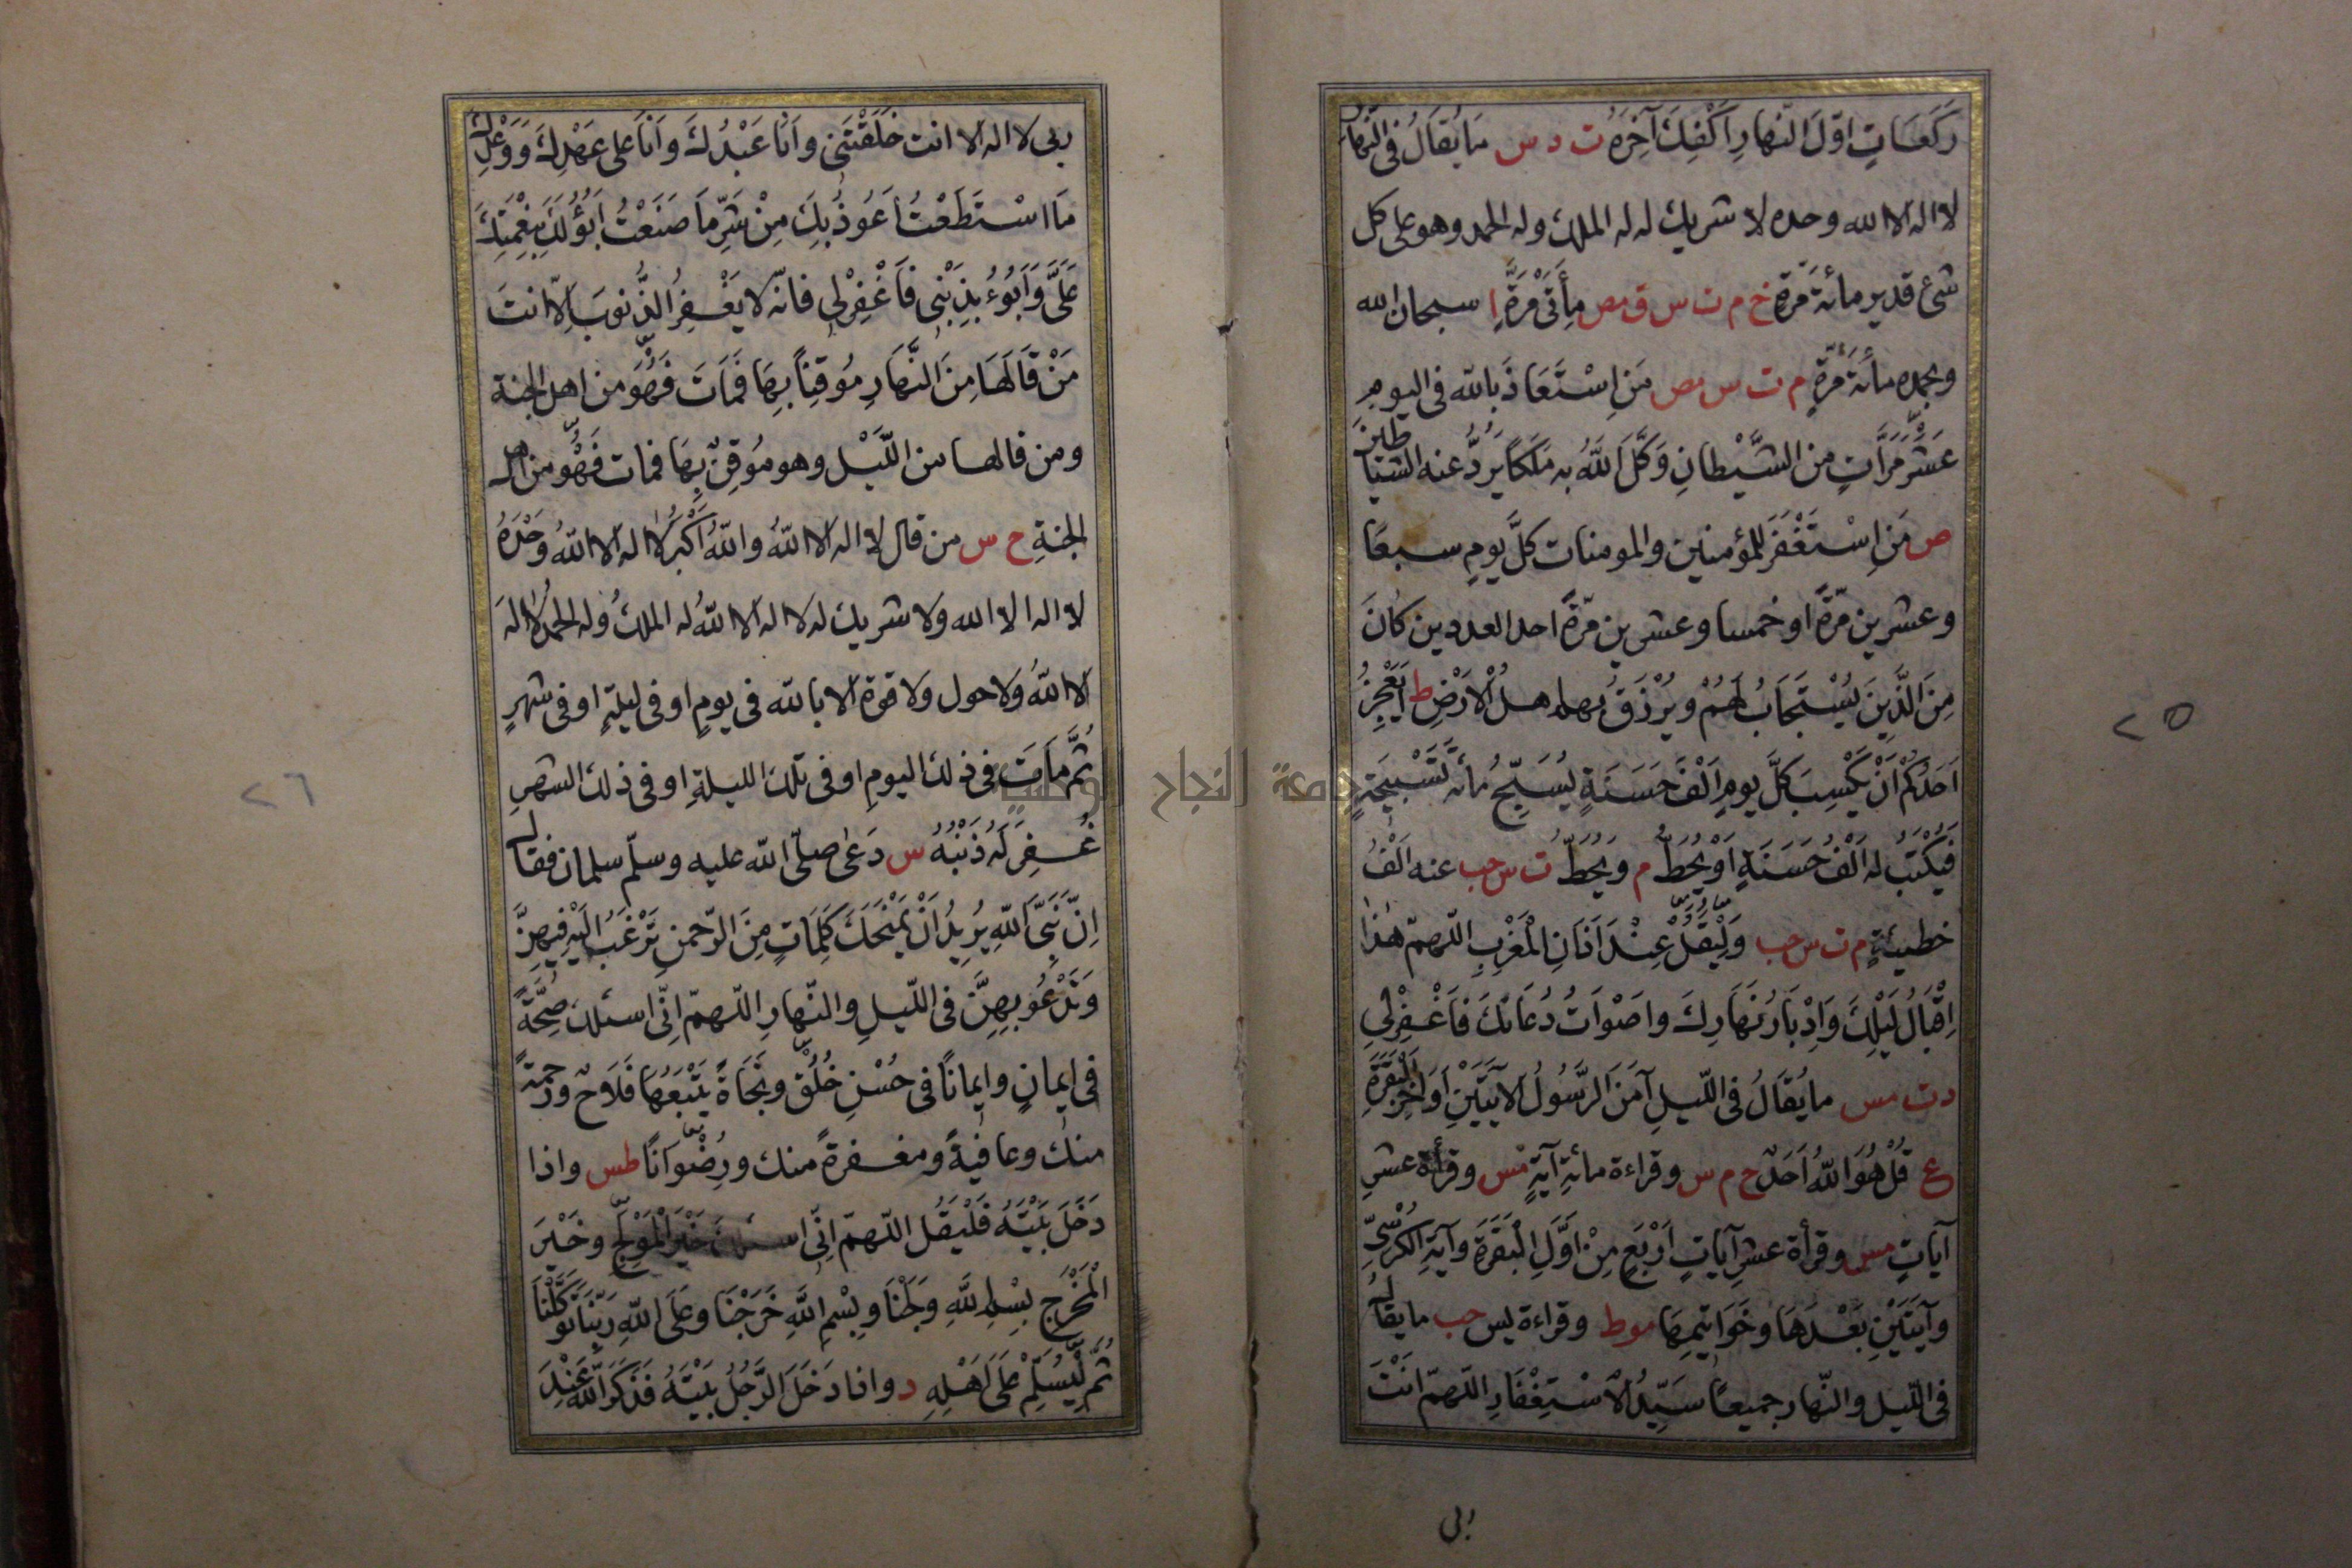 رَكَعَاتٍ اوّلَ النّهارِ اَكْفِكَ آخِرَهُ ت د س مَا يُقَالُ فى النّهارِ
لا اله الا الله وحده لا شريك له له الملك وله الحمد وهو على كل
شئ قدير مائة مَرّةٍ خ م ت س ق مص مِأَتَىْ مَرَّةٍ ا سبحان الله
وبحمده مائة مرّةٍ م ت س مص مَنِ اسْتَعَاذَ بالله فى اليومِ
عَشْرَ مَرَّاتٍ من الشَّيْطانِ وَكَّلَ اللّهُ به مَلَكاً يَرُدُّ عنه الشياطينَ
ص مَنِ اسْتَغْفَرَ للمؤمنين والمومنات كلَّ يومٍ سبعًا
وعشرين مرّةً او خمسا وعشرين مرّةً احد العددين كانَ
مِنَ الَّذِينَ يُسْتَجَابُ لَهُمْ ويُرْزَقُ بهم اهلُ الْاَرْضِ ط اَيَعْجِزُ
اَحَدُكُمْ اَنْ يَكْسِبَ كلَّ يومٍ اَلْفَ حَسَنَةٍ يُسَبِّحُ مائة تَسْبِيحَةٍ
فَيُكْتَبُ له اَلْفُ حَسَنَةٍ اَوْ يُحَطُّ م وَيُحَطُّ ت س حب عنه اَلْفُ
خطيئةٍ م ت س حب وَلْيَقُلْ عِنْدَ اَذَانِ الْمَغْرِبِ اللّهمّ هذا
اِقْبَالُ لَيْلِكَ وَاِدْبَارُ نَهَارِكَ واَصْوَاتُ دُعَاتِكَ فَاغْفِرْ لِى
د ت مس ما يُقَالُ فى اللّيلِ آمَنَ الرَّسُولُ الْاَيَتَيْنِ اَوَاخِرِ الْبَقَرَةِ
ع قُلْ هُوَ اللّهُ اَحَدٌ خ م س وقراءة مائةِ آيةٍ مس وقراة عشرِ
آياتٍ مس وقراة عشرِ آياتٍ اَرْبَعٍ مِنْ اَوَّلِ الْبَقَرَةِ وآيةِ الكُرْسِىِّ
وآيَتَيْنِ بَعْدَهَا وخَوَاتِيمِهَا موط وقراءة يس حب ما يقالُ
فى اللّيل والنّهار جميعاً سَيِّدُ الْاسْتِغْفَارِ اللّهمّ انْتَ
ربى
٢٥
ربى لا اله الا انت خَلَقْتَنِى واَنَا عَبْدُكَ واَنَا على عَهْدِكَ وَوَعْدِكَ
مَا اسْتَطَعْتُ اَعُوذُ بِكَ مِنْ شَرِّ مَا صَنَعْتُ اَبُوْءُ لَكَ بِنِعْمَتِكَ
عَلَىَّ وَاَبُوْءُ بِذَنْبِى فَاغْفِرْلِى فانّه لا يَغْفِرُ الذُّنوبَ اِلّا انتَ
مَنْ قَالَهَا مِنَ النَّهَارِ مُوقِنًا بِهَا فَمَاتَ فَهُوَ من اهل الجنة
ومن قالها من اللَّيْلِ وهو مُوْقِنٌ بِهَا فمات فَهُوَ من اهل
الجنةِ خ س من قال لا اله الا اللّهُ واللّهُ اَكْبَرُ لا اله الا اللّهُ وَحْدَهُ
لا اله الا الله ولا شريك له لا اله الا اللّهُ له الملكُ وله الحمدُ لا الهَ
الا اللّهُ ولا حول ولا قوة الا بالله فى يومٍ او فى ليلةٍ او فى شهرٍ
ثُمَّ مَاتَ فى ذلك اليومِ او فى تلك الليلةِ او فى ذلك الشهرِ
غُفِرَ لَهُ ذَنْبُهُ س دَعَى صلّى الله عليه وسلّم سلمان فقال
اِنَّ نَبِىَّ اللّهِ يُرِيدُ اَنْ يَمْنَحَكَ كَلِمَاتٍ مِنَ الرّحمنِ تَرْغَبُ اِلَيْهِ فِيهِنَّ
وَتَدْعُو بِهِنَّ فى اللّيلِ والنّهارِ اللّهمّ اِنّى اسئلك صِحَّةً
فى ايمانٍ وايمانًا فى حُسْنِ خُلُقٍ ونَجَاةً يَتْبَعُهَا فَلَاحٌ ورحمةً
منك وعافيةً ومغفرةً منك ورِضْوَانًا طس واذا
دَخَلَ بَيْتَهُ فَلْيَقُلِ اللّهمّ اِنّى اسئلك خَيْرَ الْمَوْلِجِ وخَيْرَ
الْمَخْرَجِ بِسْمِ اللَّهِ وَلَجْنَا وبِسْمِ اللَّهِ خَرَجْنَا وعَلَى اللّهِ رَبِّنَا تَوَكَّلْنَا
ثُمَّ لْيُسَلِّمْ عَلَى اَهْلِهِ د واذا دَخَلَ الرَّجُلُ بَيْتَهُ فَذَكَرَ اللّهَ عِنْدَ
٢٦
جامعة النجاح الوطنية